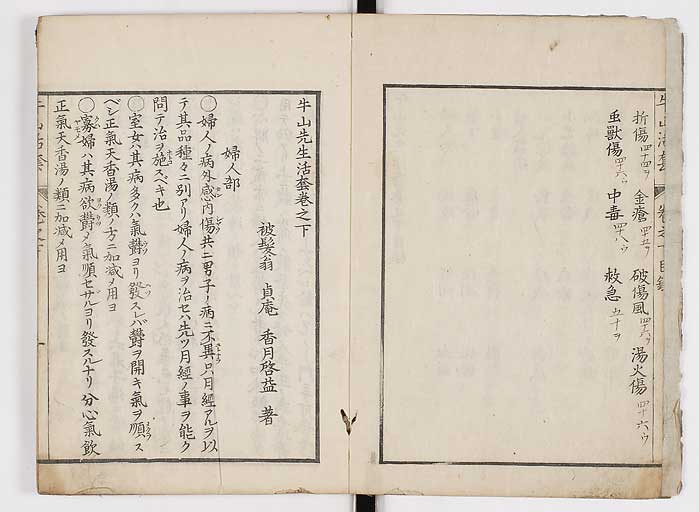 折傷四十四ヲ 金瘡四十五ヲ 破傷風四十六ヲ 湯火傷四十六ウ
虫獸傷四十六ウ 中毒四十八ウ 救急五十ヲ
牛山先生活套卷之下
被髮翁 貞庵 香月啓益 著
婦人部
○婦人ノ病外感内傷共ニ男子ノ病ニ不異只月經アルヲ以
テ其品種々ニ別アリ婦人ノ病ヲ治セハ先ツ月經ノ事ヲ能ク
問テ治ヲ施スベキ也
○室女ハ其病多クハ氣欝ヨリ發スレバ欝ヲ開キ氣ヲ順ス
ベシ正氣天香湯ノ類ノ方ニ加減〆用ヨ
○寡婦ハ其病欲欝〆氣順セサルヨリ發スルナリ分心氣飲
正氣天香湯ノ類ニ加減〆用ヨ